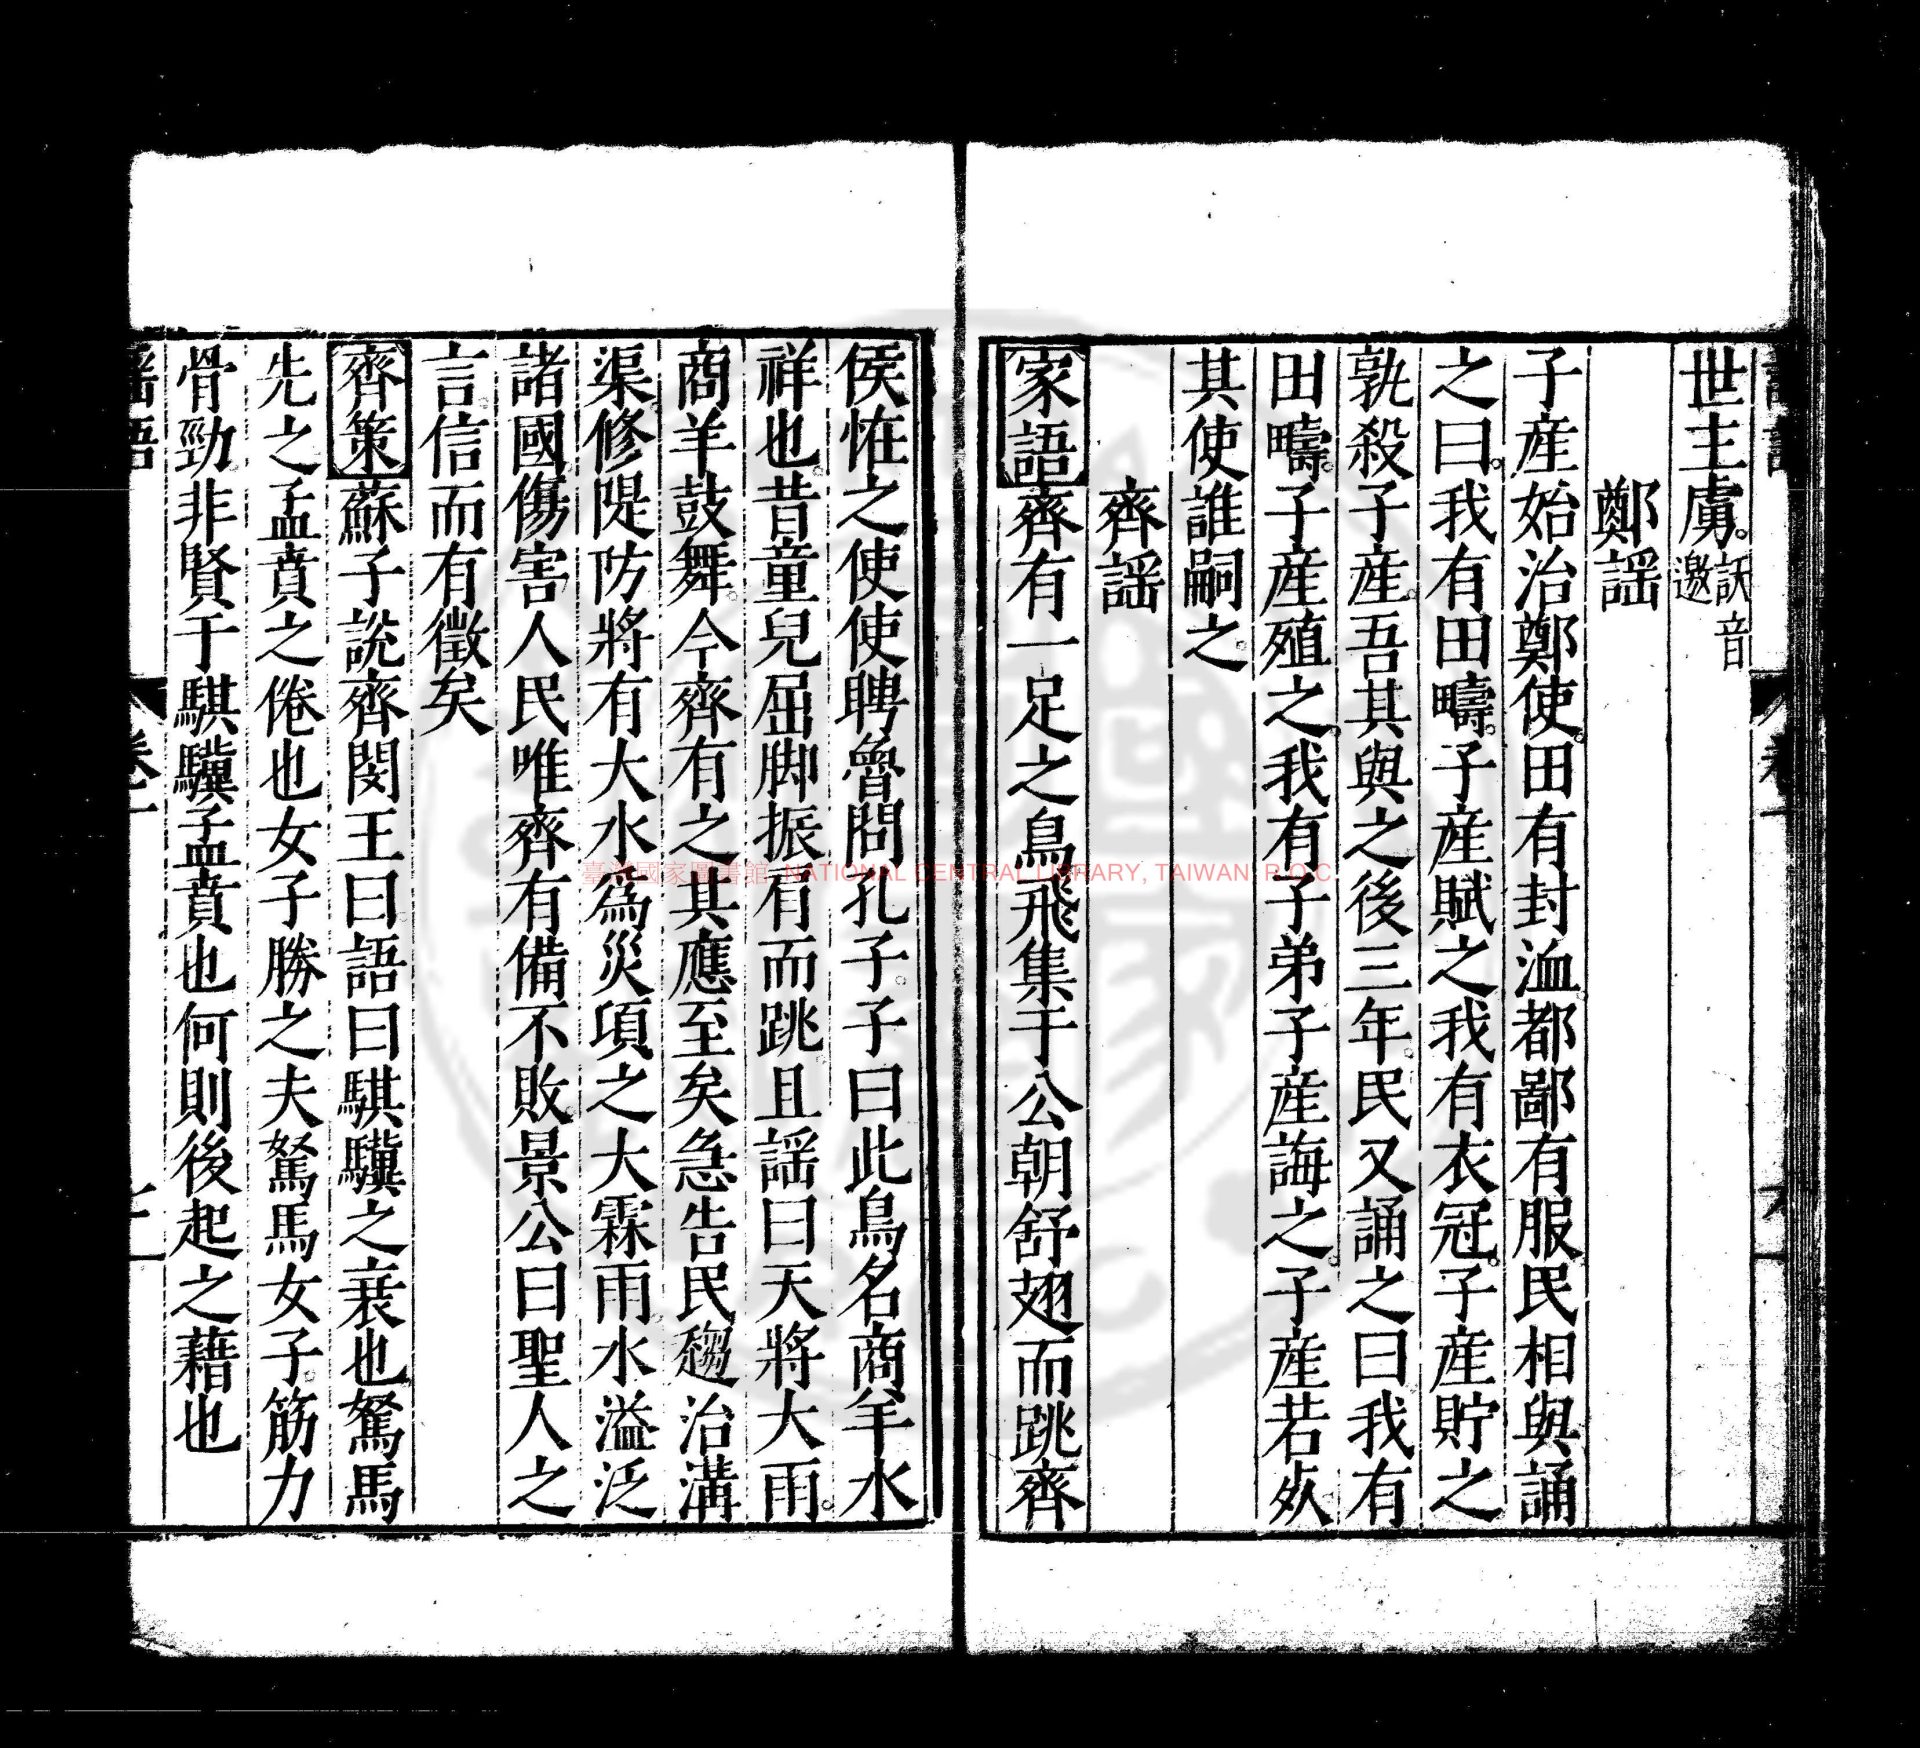 世主虜訞音邀
鄭謡
子産始治鄭使田有封洫都鄙有服民相與誦
之曰我有田疇子産賦之我有衣冠子産貯之
孰殺子産吾其與之後三年民又誦之曰我有
田疇子産殖之我有子弟子産誨之子産若死
其使誰嗣之
齊謡
家語齊有一足之鳥飛集于公朝舒翅而跳齊
侯恠之使使聘魯問孔子子曰此鳥名商羊水
祥也昔童兒屈脚振肩而跳且謡曰天將大雨
商羊鼓舞今齊有之其應至矣急告民趨治溝
渠修隄防將有大水為災項之大霖雨水溢泛
諸國傷害人民唯齊有備不敗景公曰聖人之
言信而有徵矣
齊策蘇子説齊閔王曰語曰騏驥之衰也駑馬
先之孟賁之倦也女子勝之夫駑馬女子筋力
骨勁非賢于騏驥孟賁也何則後起之藉也
臺灣國家圖書館 NATIONAL CENTRAL LIBRARY, TAIWAN R.O.C.